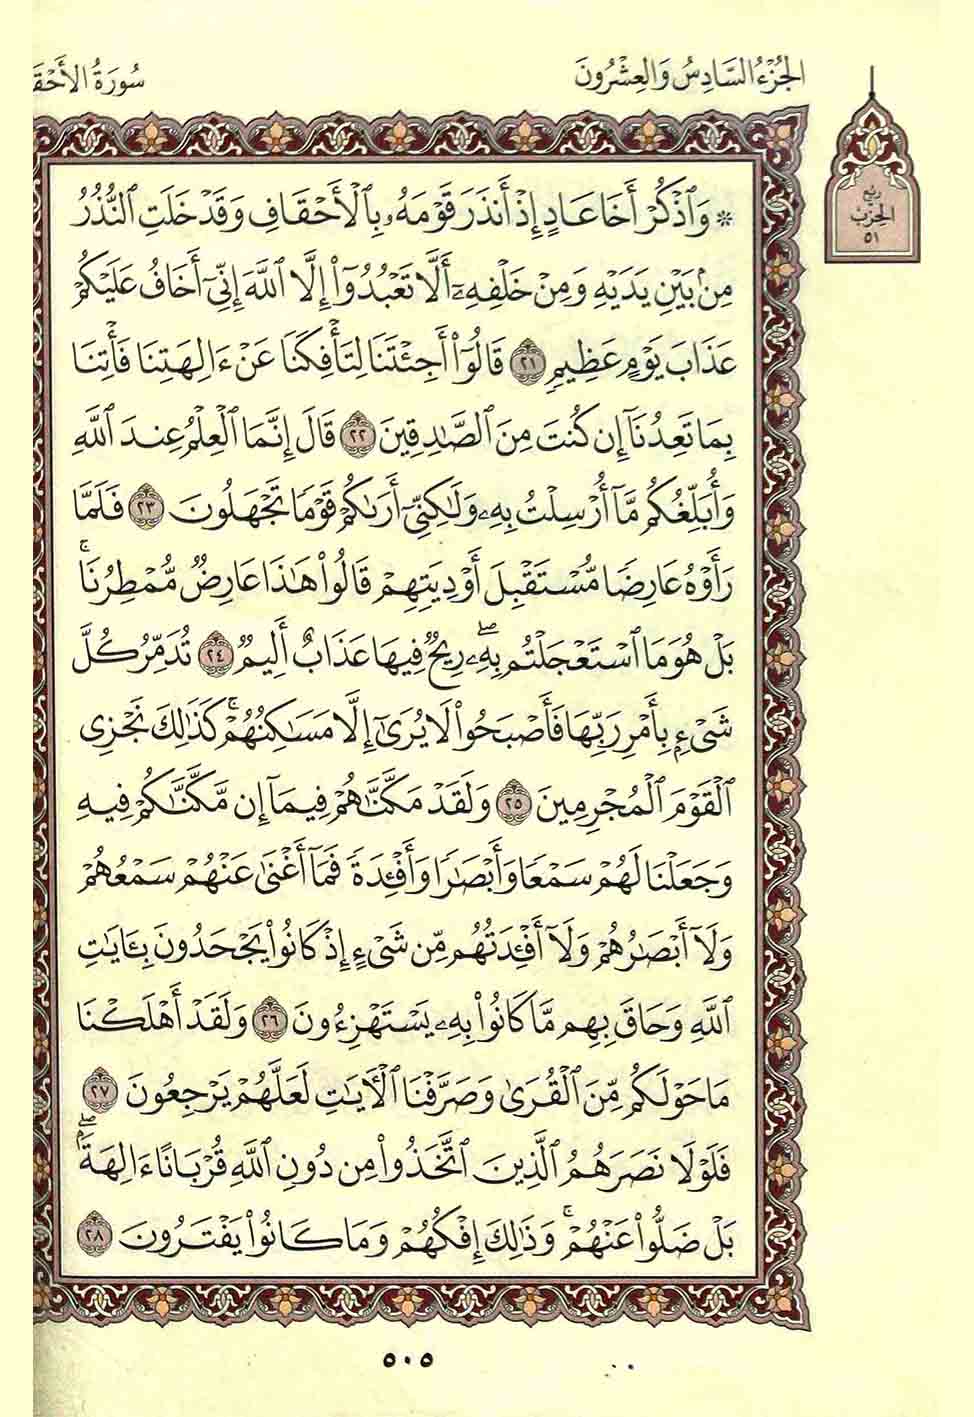 الجُزْءُ السَّادِسُ وَالعِشْرُونَ
سُورَةُ الأَحْقَ
رُبْعُ
الحِزْبِ
٥١
* وَٱذۡكُرۡ أَخَا عَادٍ إِذۡ أَنذَرَ قَوۡمَهُۥ بِٱلۡأَحۡقَافِ وَقَدۡ خَلَتِ ٱلنُّذُرُ
مِنۢ بَيۡنِ يَدَيۡهِ وَمِنۡ خَلۡفِهِۦٓ أَلَّا تَعۡبُدُوٓاْ إِلَّا ٱللَّهَ إِنِّيٓ أَخَافُ عَلَيۡكُمۡ
عَذَابَ يَوۡمٍ عَظِيمٖ ٢١ قَالُوٓاْ أَجِئۡتَنَا لِتَأۡفِكَنَا عَنۡ ءَالِهَتِنَا فَأۡتِنَا
بِمَا تَعِدُنَآ إِن كُنتَ مِنَ ٱلصَّٰدِقِينَ ٢٢ قَالَ إِنَّمَا ٱلۡعِلۡمُ عِندَ ٱللَّهِ
وَأُبَلِّغُكُم مَّآ أُرۡسِلۡتُ بِهِۦ وَلَٰكِنِّيٓ أَرَىٰكُمۡ قَوۡمٗا تَجۡهَلُونَ ٢٣ فَلَمَّا
رَأَوۡهُ عَارِضٗا مُّسۡتَقۡبِلَ أَوۡدِيَتِهِمۡ قَالُواْ هَٰذَا عَارِضٞ مُّمۡطِرُنَاۚ
بَلۡ هُوَ مَا ٱسۡتَعۡجَلۡتُم بِهِۦۖ رِيحٞ فِيهَا عَذَابٌ أَلِيمٞ ٢٤ تُدَمِّرُ كُلَّ
شَيۡءِۭ بِأَمۡرِ رَبِّهَا فَأَصۡبَحُواْ لَا يُرَىٰٓ إِلَّا مَسَٰكِنُهُمۡۚ كَذَٰلِكَ نَجۡزِي
ٱلۡقَوۡمَ ٱلۡمُجۡرِمِينَ ٢٥ وَلَقَدۡ مَكَّنَّٰهُمۡ فِيمَآ إِن مَّكَّنَّٰكُمۡ فِيهِ
وَجَعَلۡنَا لَهُمۡ سَمۡعٗا وَأَبۡصَٰرٗا وَأَفۡـِٔدَةٗ فَمَآ أَغۡنَىٰ عَنۡهُمۡ سَمۡعُهُمۡ
وَلَآ أَبۡصَٰرُهُمۡ وَلَآ أَفۡـِٔدَتُهُم مِّن شَيۡءٍ إِذۡ كَانُواْ يَجۡحَدُونَ بِـَٔايَٰتِ
ٱللَّهِ وَحَاقَ بِهِم مَّا كَانُواْ بِهِۦ يَسۡتَهۡزِءُونَ ٢٦ وَلَقَدۡ أَهۡلَكۡنَا
مَا حَوۡلَكُم مِّنَ ٱلۡقُرَىٰ وَصَرَّفۡنَا ٱلۡأٓيَٰتِ لَعَلَّهُمۡ يَرۡجِعُونَ ٢٧
فَلَوۡلَا نَصَرَهُمُ ٱلَّذِينَ ٱتَّخَذُواْ مِن دُونِ ٱللَّهِ قُرۡبَانًا ءَالِهَةَۢۖ
بَلۡ ضَلُّواْ عَنۡهُمۡۚ وَذَٰلِكَ إِفۡكُهُمۡ وَمَا كَانُواْ يَفۡتَرُونَ ٢٨
٥٠٥